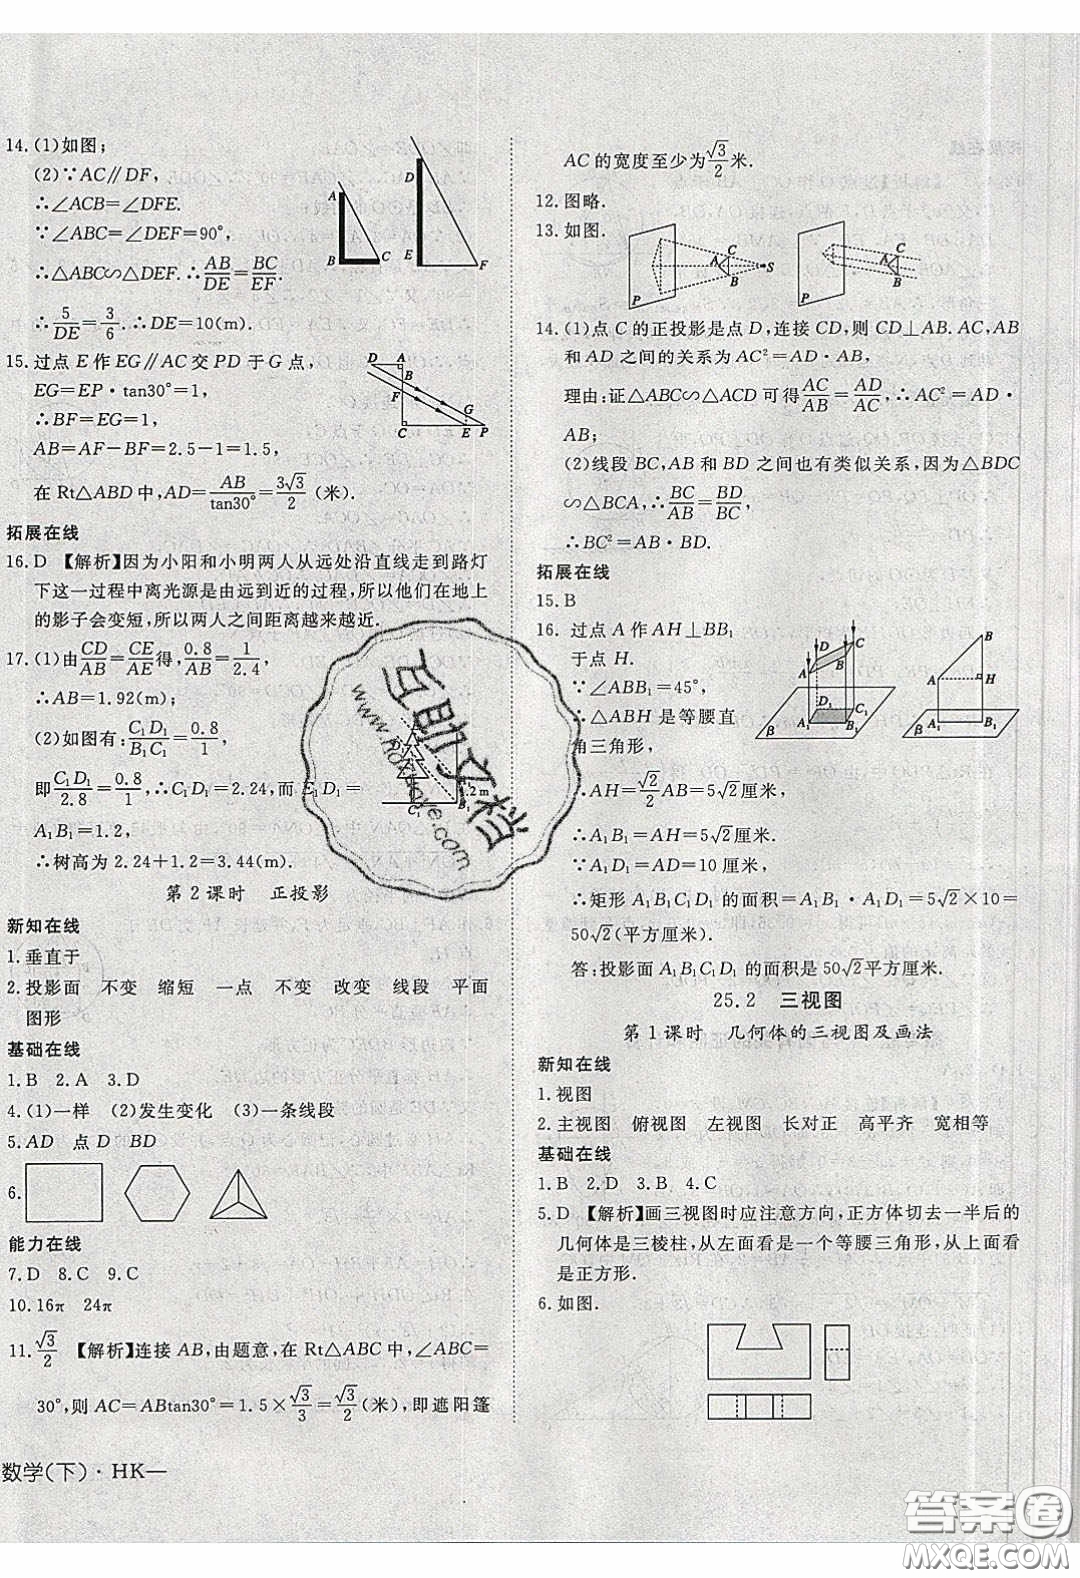 14.(1)如图;
(2)∵AC∥DF,
∴∠ACB=∠DFE.
∵∠ABC=∠DEF=90°,
∴△ABC∽△DEF.∴AB/DE=BC/EF.
∴5/DE=3/6.∴DE=10(m).
A
B
C
D
E
F
15.过点E作EG∥AC交PD于G点,
EG=EP·tan30°=1,
∴BF=EG=1,
AB=AF-BF=2.5-1=1.5,
在Rt△ABD中,AD=AB/tan30°=3√3/2(米).
D A
B
F
G
C E P
拓展在线
16.D 【解析】因为小阳和小明两人从远处沿直线走到路灯
下这一过程中离光源是由远到近的过程,所以他们在地上
的影子会变短,所以两人之间距离越来越近.
17.(1)由CD/AB=CE/AE得,0.8/AB=1/2.4,
∴AB=1.92(m);
(2)如图有:C₁D₁/B₁C₁=0.8/1,
即C₁D₁/2.8=0.8/1,∴C₁D₁=2.24,而E₁D₁=
A₁B₁=1.2,
∴树高为2.24+1.2=3.44(m).
第2课时 正投影
新知在线
1.垂直于
2.投影面 不变 缩短 一点 不变 改变 线段 平面
图形
基础在线
1.B 2.A 3.D
4.(1)一样 (2)发生变化 (3)一条线段
5.AD 点D BD
6.
能力在线
7.D 8.C 9.C
10.16π 24π
11.√3/2 【解析】连接AB,由题意,在Rt△ABC中,∠ABC=
30°,则AC=ABtan30°=1.5×√3/3=√3/2(米),即遮阳篷
数学(下)·HK—
AC的宽度至少为√3/2米.
12.图略.
13.如图.
P
A
C
B
S
P
A
C
B
14.(1)点C的正投影是点D,连接CD,则CD⊥AB.AC,AB
和AD之间的关系为AC²=AD·AB,
理由:证△ABC∽△ACD可得AC/AB=AD/AC,∴AC²=AD·
AB;
(2)线段BC,AB和BD之间也有类似关系,因为△BDC
∽△BCA,∴BC/AB=BD/BC,
∴BC²=AB·BD.
拓展在线
15.B
16.过点A作AH⊥BB₁
于点H.
∵∠ABB₁=45°,
∴△ABH是等腰直
角三角形,
∴AH=√2/2AB=5√2厘米,
∴A₁B₁=AH=5√2厘米.
∵A₁D₁=AD=10厘米,
∴矩形A₁B₁C₁D₁的面积=A₁B₁·A₁D₁=5√2×10=
50√2(平方厘米).
答:投影面A₁B₁C₁D₁的面积是50√2平方厘米.
25.2 三视图
第1课时 几何体的三视图及画法
新知在线
1.视图
2.主视图 俯视图 左视图 长对正 高平齐 宽相等
基础在线
1.B 2.D 3.B 4.C
5.D 【解析】画三视图时应注意方向,正方体切去一半后的
几何体是三棱柱,从左面看是一个等腰三角形,从上面看
是正方形.
6.如图.
百助文档
www.hoxhove.com
答案卷
MXQE.COM